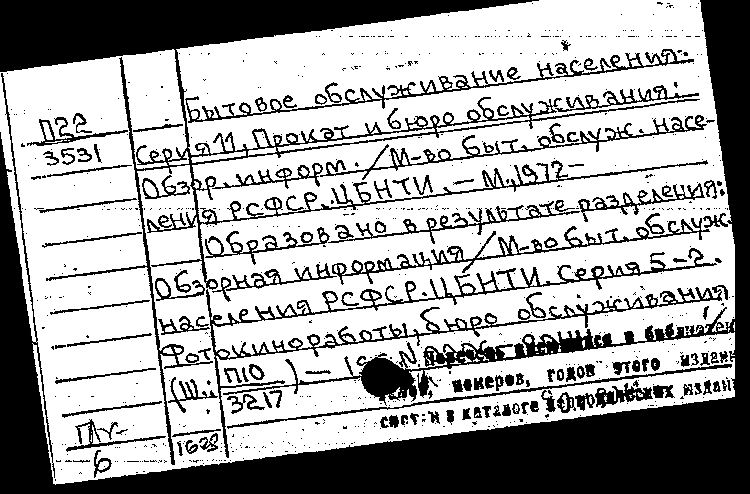 Бытовое обслуживание населения:
П22
3531
Серия 11, Прокат и бюро обслуживания:
Обзор. информ. / М-во быт. обслуж. насе-
ления РСФСР. ЦБНТИ. — М., 1972 —
Образовано в результате разделения:
Обзорная информация / М-во быт. обслуж.
населения РСФСР. ЦБНТИ. Серия 5-2.
Фотокиноработы, бюро обслуживания
(Ш.: П10
3217) —
имеющихся в библиотеке
номеров, годов этого издан
смотри в каталоге периодических издан
6